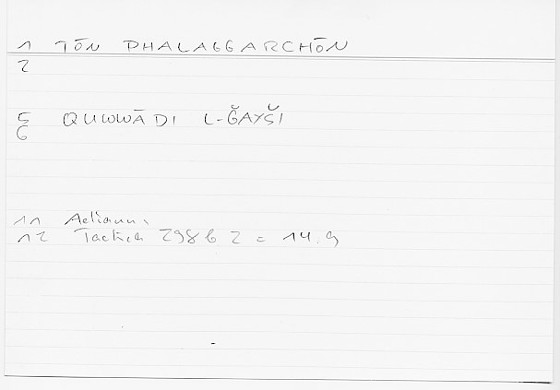 1 TŌN PHALAGGARCHŌN
2
5 QUWWĀDI L-ĞAYŠI
6
11 Aelianus
12 Tactica 298 b 2 = 14.9